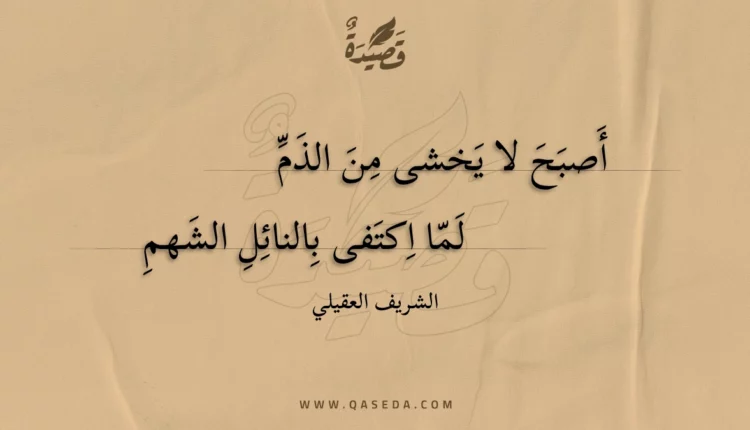 قَصِيْدَةٌ
أَصبَحَ لا يَخشى مِنَ الذَمِّ
لَمّا اِكتَفى بِالنائِلِ الشَهمِ
الشريف العقيلي
WWW.QASEDA.COM